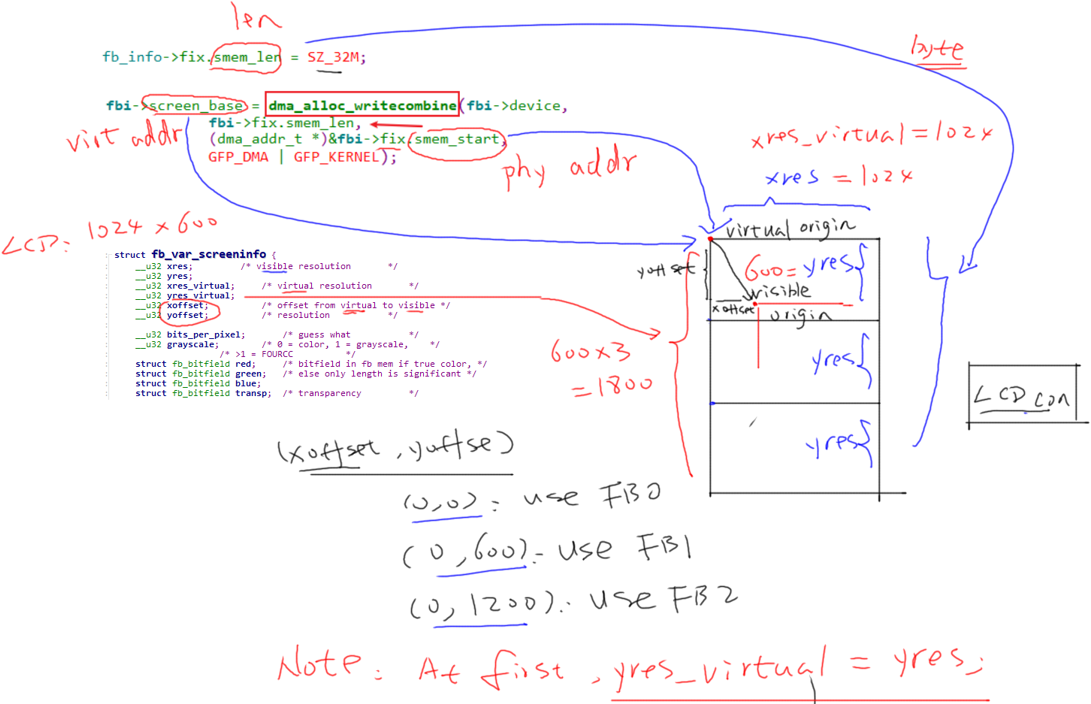 len
fb_info->fix.smem_len = SZ_32M;
byte
fbi->screen_base = dma_alloc_writecombine(fbi->device,
fbi->fix.smem_len,
(dma_addr_t *)&fbi->fix.smem_start,
GFP_DMA | GFP_KERNEL);
virt addr
phy addr
xres_virtual=1024
xres = 1024
LCD: 1024 x 600
virtual origin
yoffset
600=yres
visible
xoffset
origin
struct fb_var_screeninfo {
__u32 xres; /* visible resolution */
__u32 yres;
__u32 xres_virtual; /* virtual resolution */
__u32 yres_virtual;
__u32 xoffset; /* offset from virtual to visible */
__u32 yoffset; /* resolution */
__u32 bits_per_pixel; /* guess what */
__u32 grayscale; /* 0 = color, 1 = grayscale, */
/* >1 = FOURCC */
struct fb_bitfield red; /* bitfield in fb mem if true color, */
struct fb_bitfield green; /* else only length is significant */
struct fb_bitfield blue;
struct fb_bitfield transp; /* transparency */
600x3
=1800
yres
yres
LCD con
(xoffset, yoffse)
(0,0): use FB0
(0,600): use FB1
(0,1200): use FB2
Note: At first, yres_virtual = yres;